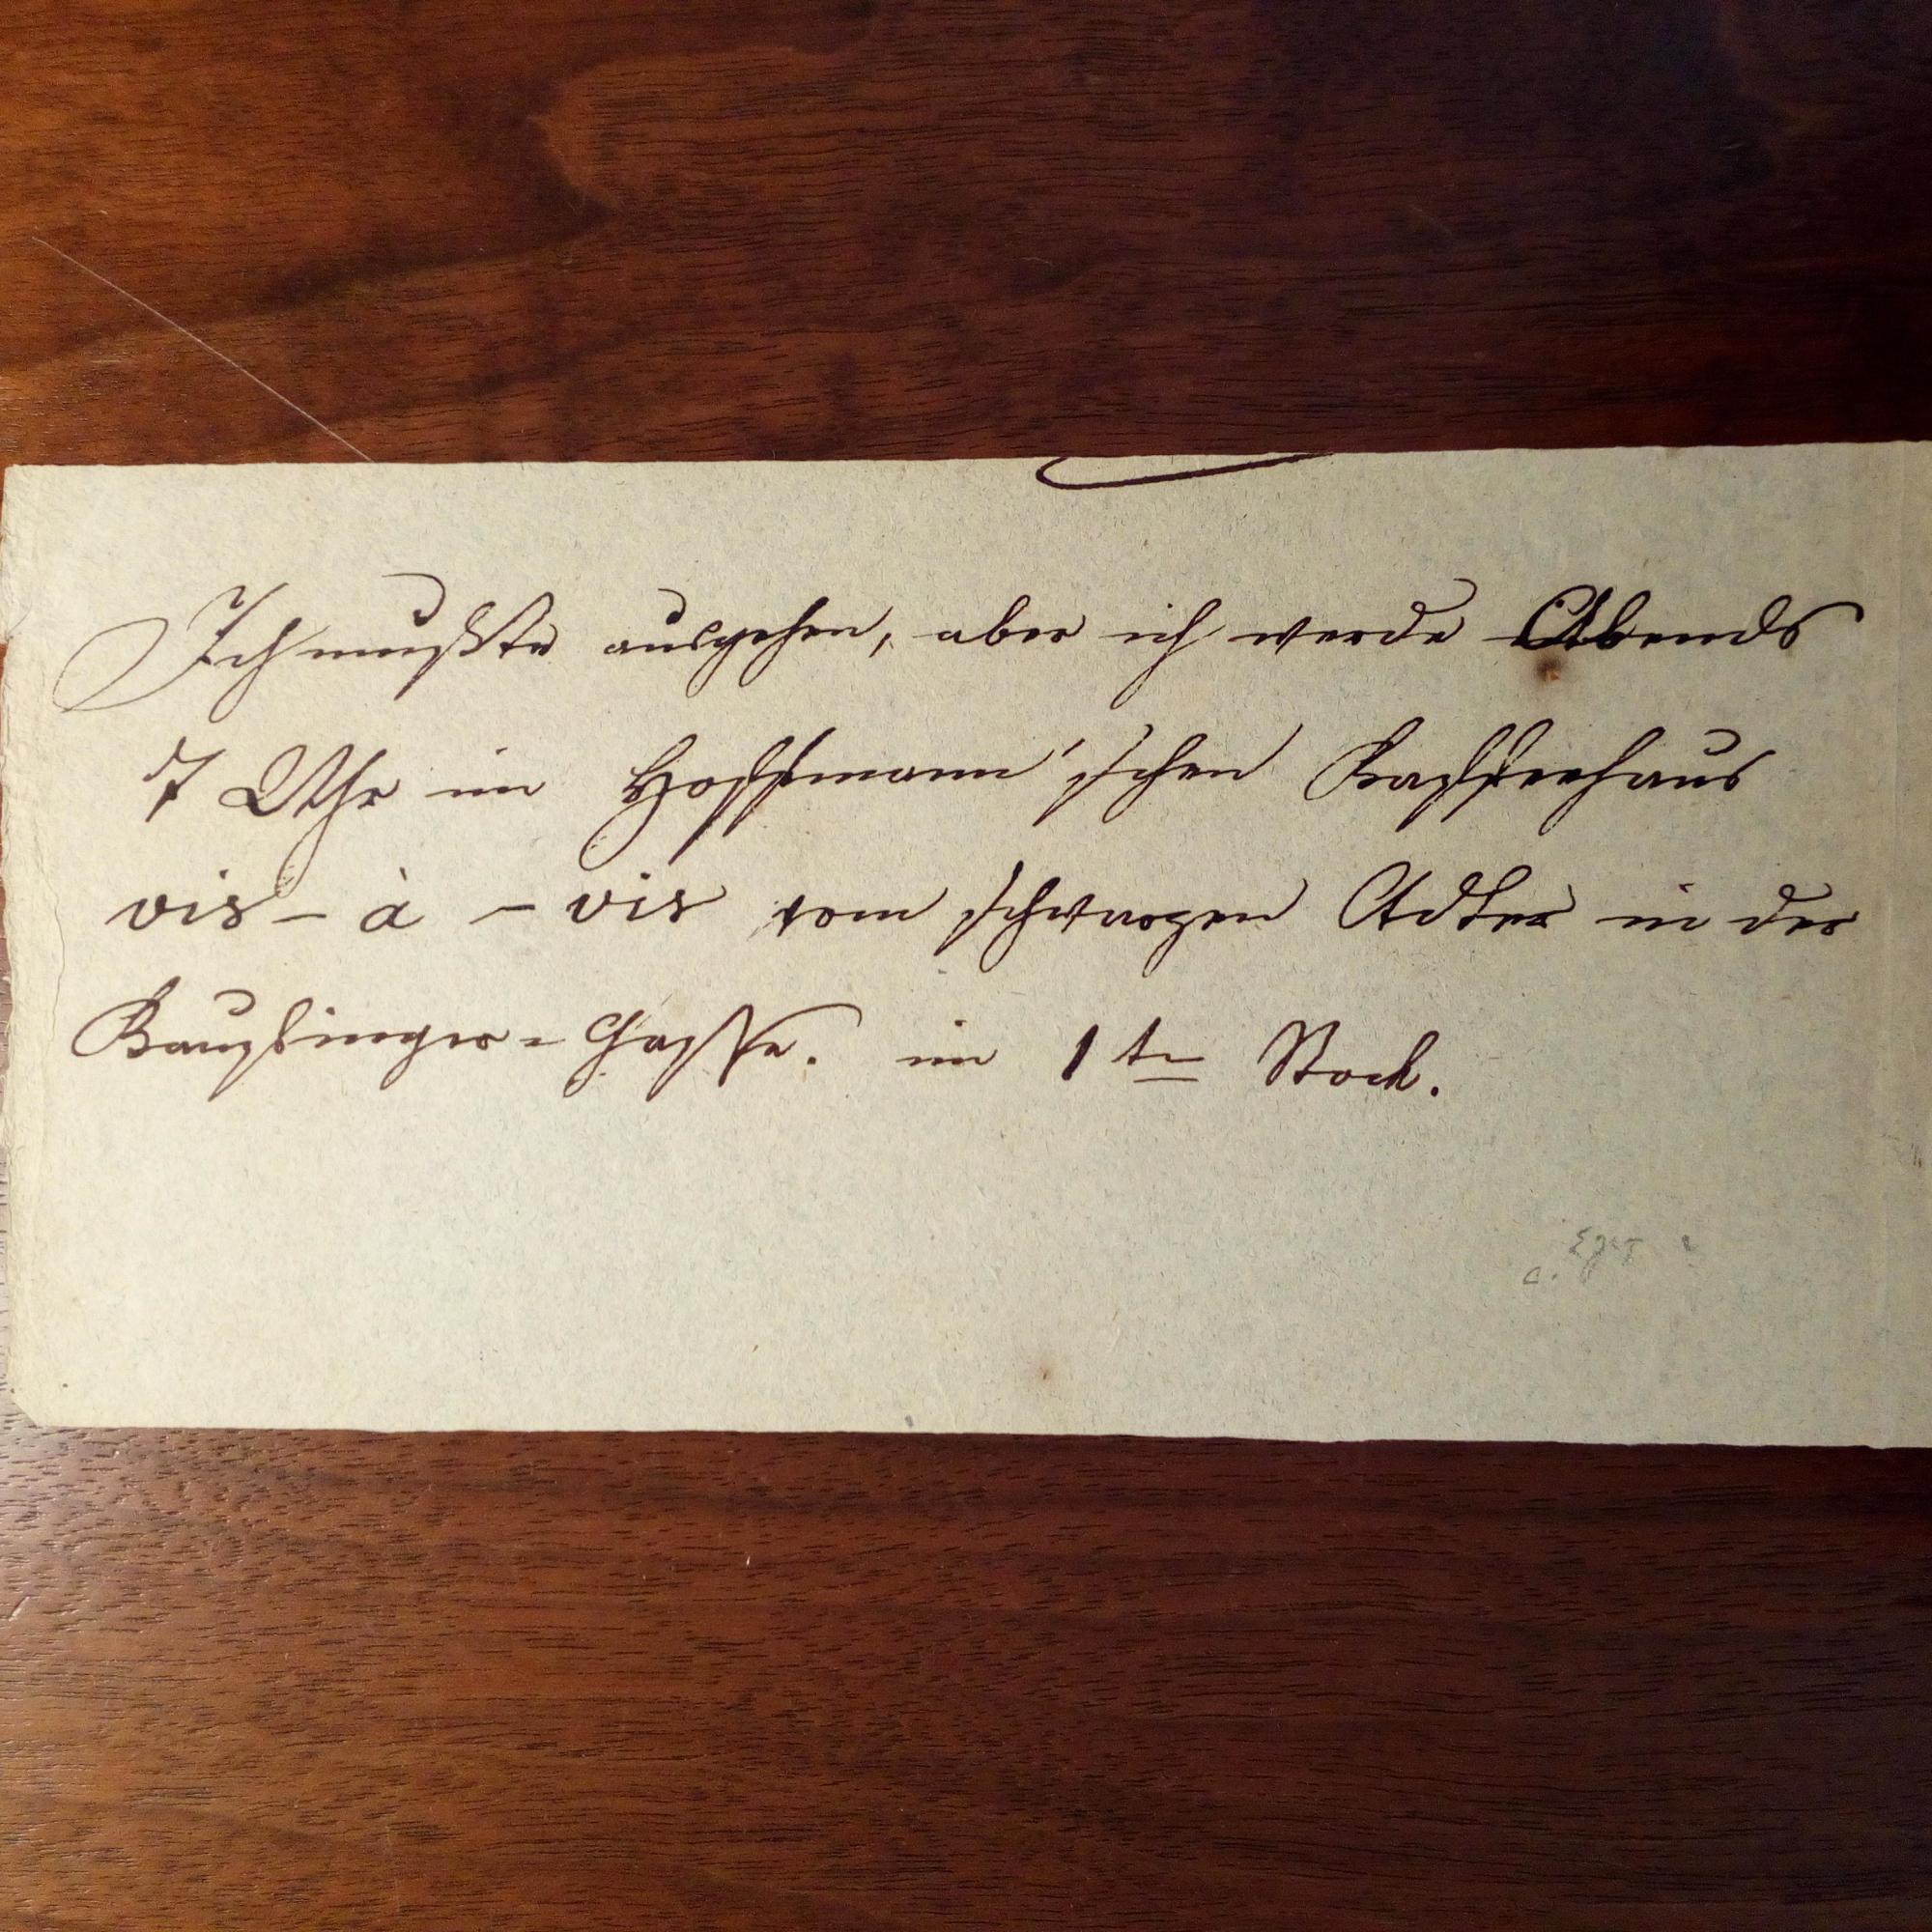 Ich mußte ausgehen, aber ich werde Abends
7 Uhr im Hoffmann'schen Kaffeehaus
vis-à-vis vom schwarzen Adler in der
Kaufinger-Gasse. im 1ten Stock.